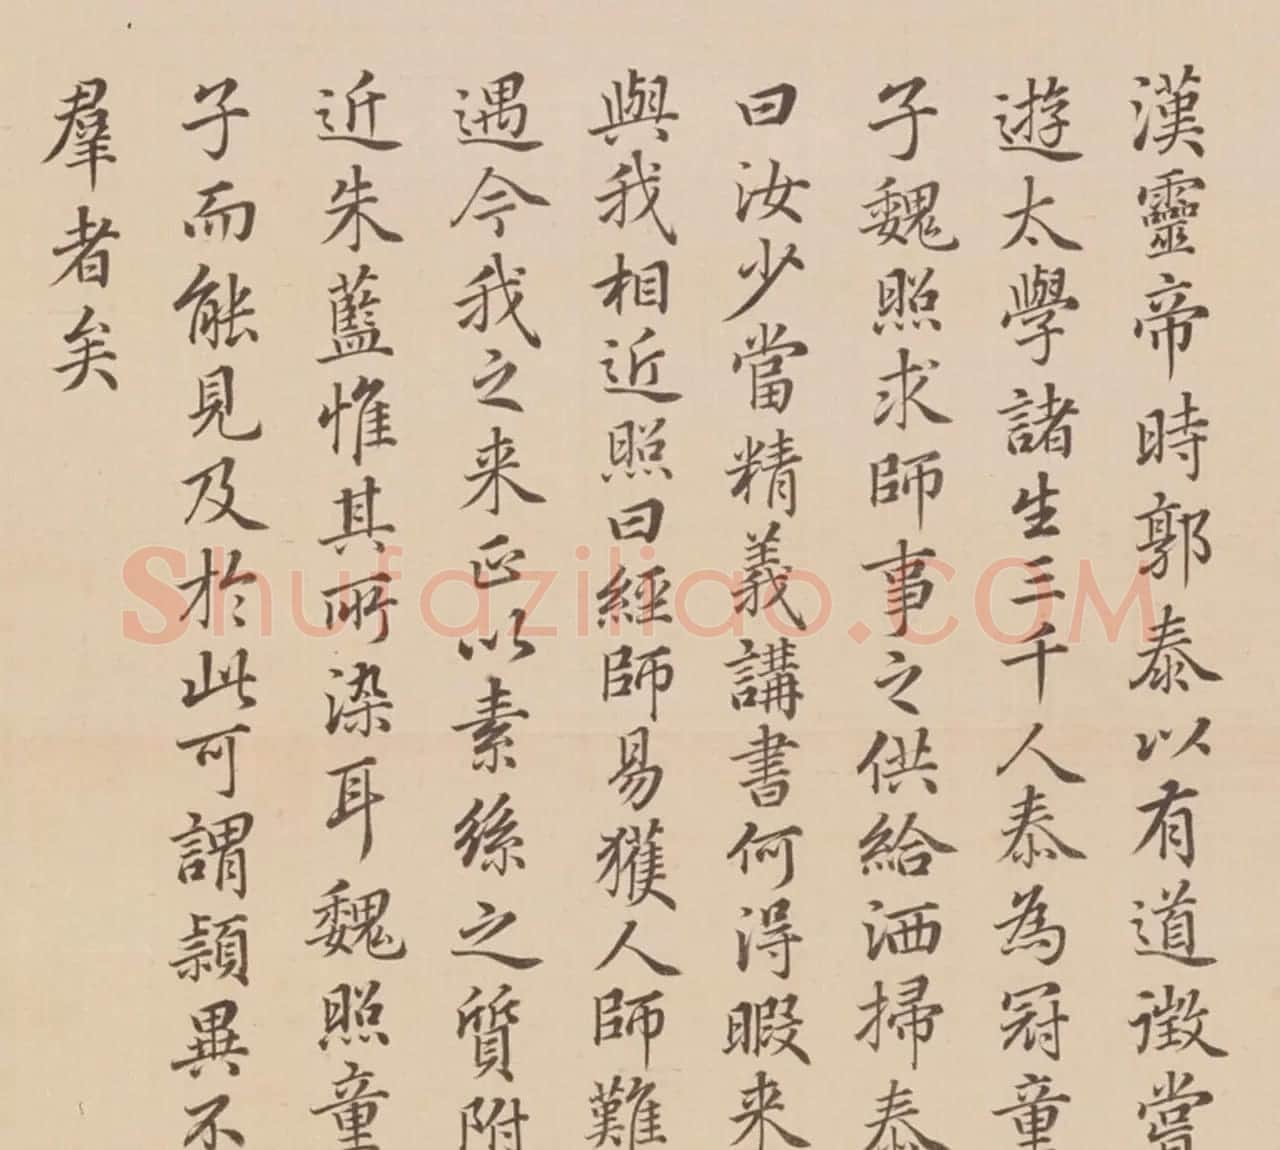 漢靈帝時郭泰以有道徵嘗
遊太學諸生三千人泰為冠童
子魏照求師事之供給洒掃泰
曰汝少當精義講書何得暇来
與我相近照曰經師易獲人師難
遇今我之来正以素絲之質附
近朱藍惟其所染耳魏照童
子而能見及於此可謂穎異不
羣者矣
Shufaziliao.COM